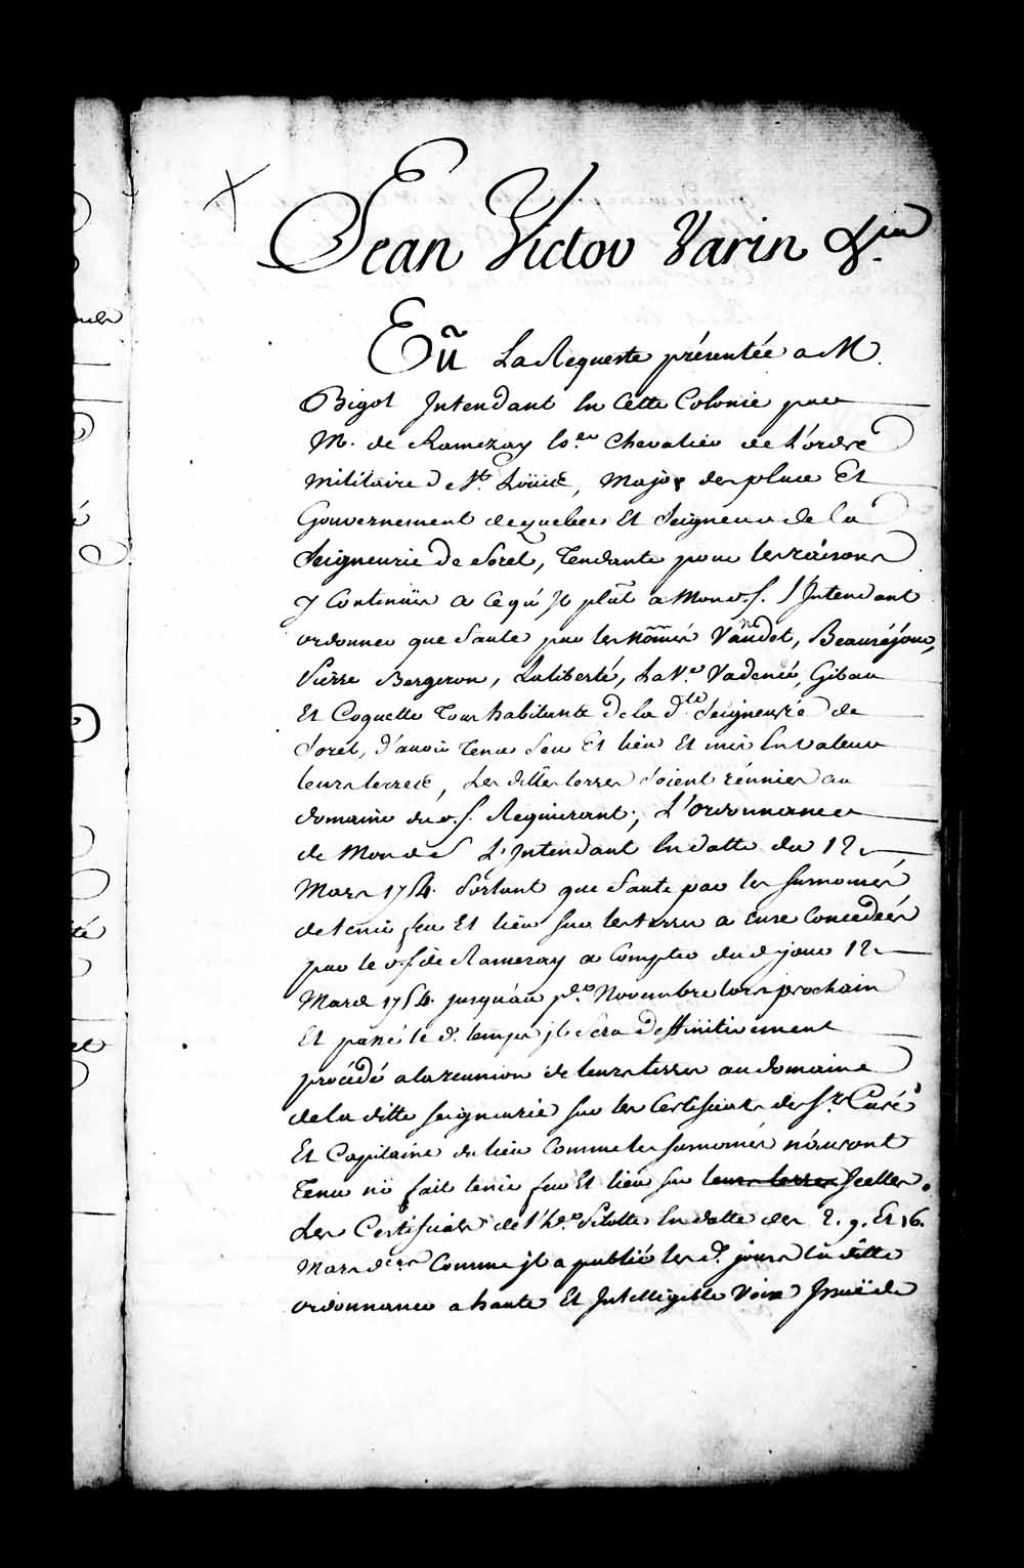 Jean Victor Varin &ca.
Vû La Requeste présentée a M.
Bigot Intendant En Cette Colonie par
M. de Ramezay Chevalier de L'ordre
militaire de St. Loüis, Major des place Et
Gouvernement de quebec Et Seigneur de la
Seigneurie De Sorel, Tendante pour les raisons
y Contenües a Ce qu'Il plût a Mond. S. l'Intendant
ordonner que faute par les Nommés Vandet, Beauséjour,
Pierre Bergeron, Laliberté, La Ve. Vadenée, Gibau
Et Coquette Tous habitants De la dte. Seigneurie de
Sorel, D'avoir Tenu feu Et lieu Et mis En valeur
leurs terres, Les dittes terres Soient réunies au
domaine dud. S. Requerant; L'ordonnance
de Mond. S. L'Intendant En datte du 12
Mars 1754. Portant que faute par les surnommés
de tenir feu Et lieu sur les terres a Eux Concedées
par led. S. de Ramezay a Compter dud. jour 12
Mars 1754. jusqu'au pr. Novembre lors prochain
Et passé le d. temps jl sera Deffinitivement
procédé a la reunion de leurs terres au domaine
de la ditte seigneurie sur les Certificats des Srs. Curé
Et Capitaine du lieu Comme les surnommés n'auront
Tenu ni fait tenir feu Et lieu sur leurs terres Icelles.
Les Certificats de l'he. Pilotte En datte des 2. 9. Et 16.
Mars der. Comme jl a publié les d. jours la ditte
ordonnance a haute Et Intelligible Voix Issüe de